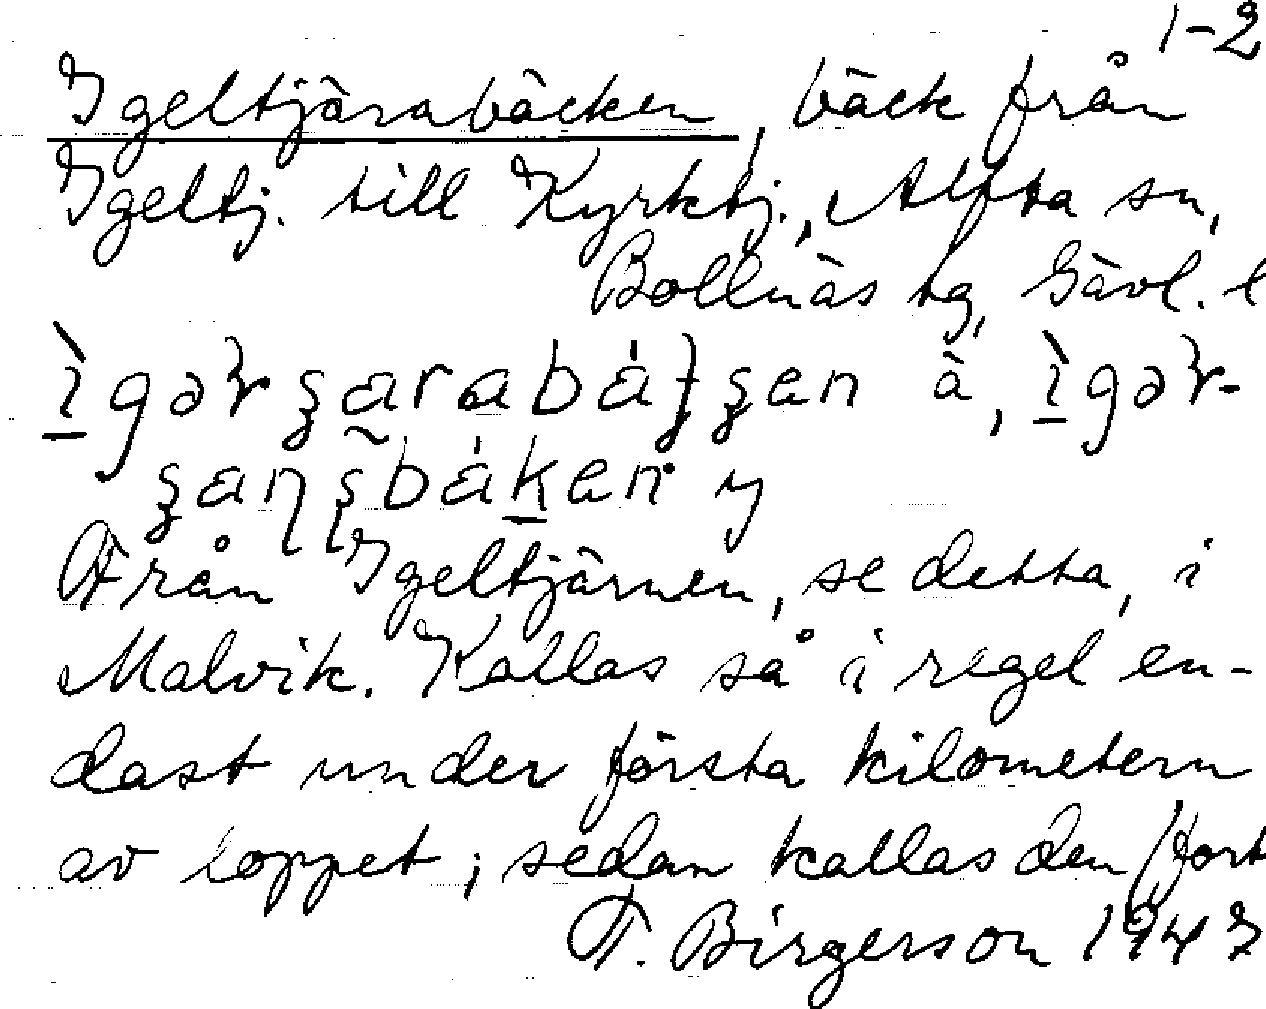 1-2
Igeltjärabäcken, bäck från
Igeltj. till Kyrktj., Alfta sn,
Bollnäs tg, Gävl. l
à,
y
Från Igeltjärnen, se detta, i
Malvik. Kallas så i regel en-
dast under första kilometern
av loppet; sedan kallas den (fort
F. Birgerson 1947